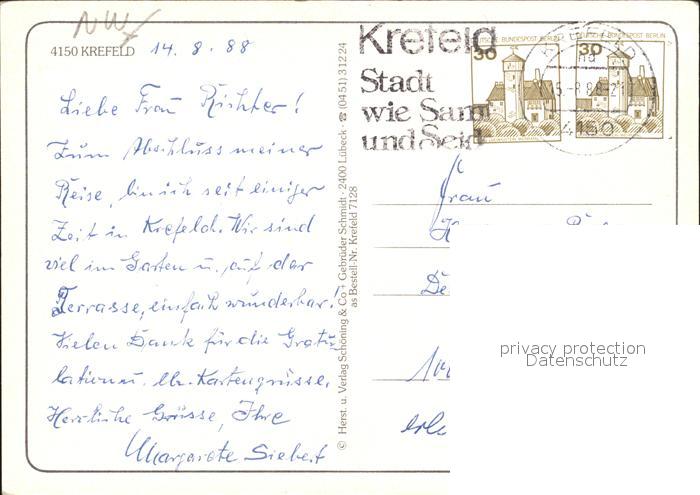 NW
4150 KREFELD 14. 8. 88
Liebe Frau Richter!
Zum Abschluss meiner
Reise, bin ich seit einiger
Zeit in Krefeld. Wir sind
viel im Garten u. auf der
Terrasse, einfach wunderbar!
Vielen Dank für die Gratu
lation u. lb. Kartengrüsse.
Herzliche Grüsse, Ihre
Margarete Siebert
© Herst. u. Verlag Schöning & Co + Gebrüder Schmidt · 2400 Lübeck · ☎ (0451) 3 12 24
as Bestell-Nr. Krefeld 7128
Krefeld
Stadt
wie Samt
und Seid
DEUTSCHE BUNDESPOST BERLIN
30
DEUTSCHE BUNDESPOST BERLIN
30
KREFELD
4150
Frau
privacy protection
Datenschutz